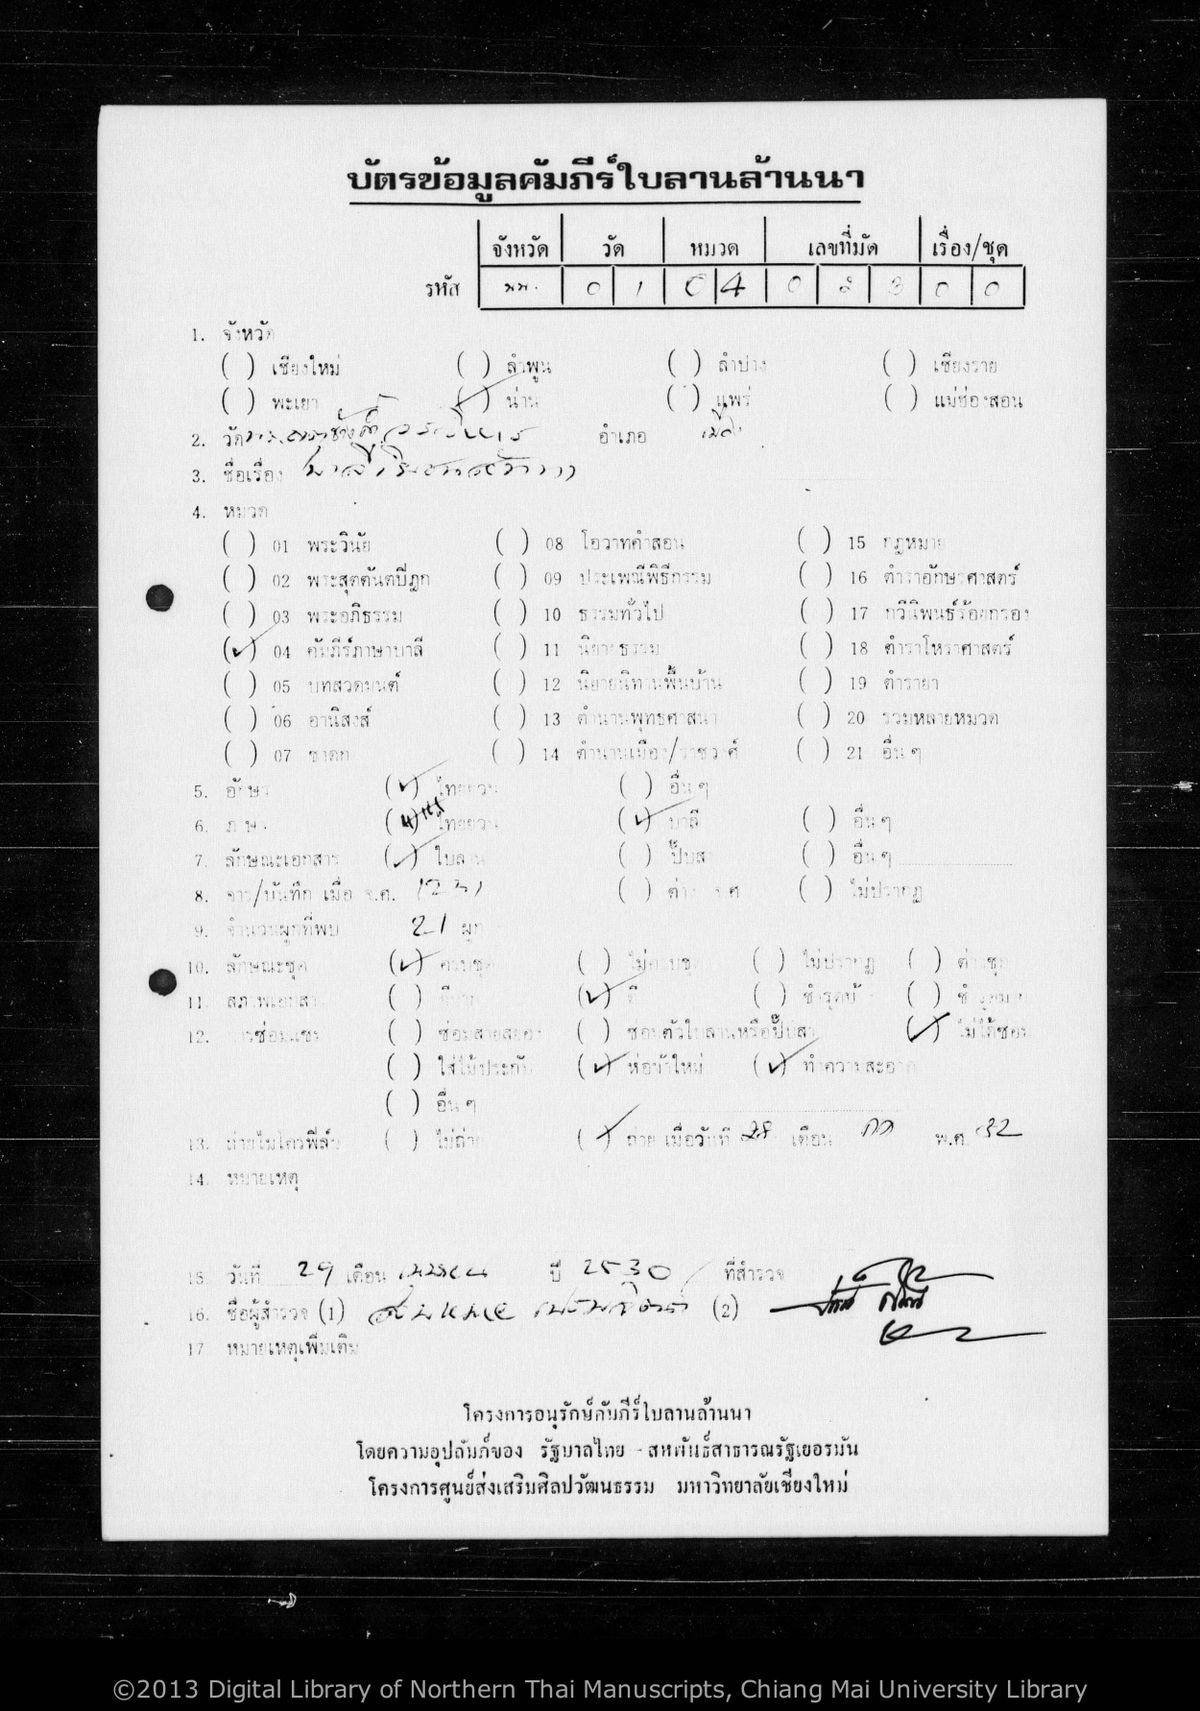 บัตรข้อมูลคัมภีร์ใบลานล้านนา
จังหวัด วัด หมวด เลขที่มัด เรื่อง/ชุด
รหัส นน. 0 1 0 4 0 2 3 0 0
1. จังหวัด
( ) เชียงใหม่ ( ) ลำพูน ( ) ลำปาง ( ) เชียงราย
( ) พะเยา (✓) น่าน ( ) แพร่ ( ) แม่ฮ่องสอน
2. วัด พระธาตุช้างค้ำวรวิหาร อำเภอ เมือง
3. ชื่อเรื่อง
4. หมวด
( ) 01 พระวินัย ( ) 08 โอวาทคำสอน ( ) 15 กฎหมาย
( ) 02 พระสุตตันตปิฎก ( ) 09 ประเพณีพิธีกรรม ( ) 16 ตำราอักษรศาสตร์
( ) 03 พระอภิธรรม ( ) 10 ธรรมทั่วไป ( ) 17 กวีนิพนธ์ร้อยกรอง
(✓) 04 คัมภีร์ภาษาบาลี ( ) 11 นิยายธรรม ( ) 18 ตำราโหราศาสตร์
( ) 05 บทสวดมนต์ ( ) 12 นิยายนิทานพื้นบ้าน ( ) 19 ตำรายา
( ) 06 อานิสงส์ ( ) 13 ตำนานพุทธศาสนา ( ) 20 รวมหลายหมวด
( ) 07 ชาดก ( ) 14 ตำนานเมือง/ราชวงศ์ ( ) 21 อื่น ๆ
5. อักษร (✓) ไทยยวน ( ) อื่น ๆ
6. ภาษา ไทยยวน (✓) บาลี ( ) อื่น ๆ
7. ลักษณะเอกสาร (✓) ใบลาน ( ) ปั๊บสา ( ) อื่น ๆ
8. จาร/บันทึก เมื่อ จ.ศ. 1231 ( ) ต่าง จ.ศ. ( ) ไม่ปรากฏ
9. จำนวนผูกที่พบ 21 ผูก
10. ลักษณะชุด (✓) ครบชุด ( ) ไม่ครบชุด ( ) ไม่ปรากฏ ( ) ต่างชุด
11. สภาพเอกสาร ( ) ดีมาก (✓) ดี ( ) ชำรุดบ้าง ( ) ชำรุดมาก
12. การซ่อมแซม ( ) ซ่อมสายสยอง ( ) ซ่อมตัวใบลานหรือปั๊บสา (✓) ไม่ได้ซ่อม
( ) ใส่ไม้ประกับ (✓) ห่อผ้าใหม่ (✓) ทำความสะอาด
( ) อื่น ๆ
13. ถ่ายไมโครฟิล์ม ( ) ไม่ถ่าย (✓) ถ่าย เมื่อวันที่ 28 เดือน กค พ.ศ. 32
14. หมายเหตุ
15. วันที่ 29 เดือน เมษายน ปี 2530 ที่สำรวจ
16. ชื่อผู้สำรวจ (1) (2)
17. หมายเหตุเพิ่มเติม
โครงการอนุรักษ์คัมภีร์ใบลานล้านนา
โดยความอุปถัมภ์ของ รัฐบาลไทย - สหพันธ์สาธารณรัฐเยอรมัน
โครงการศูนย์ส่งเสริมศิลปวัฒนธรรม มหาวิทยาลัยเชียงใหม่
©2013 Digital Library of Northern Thai Manuscripts, Chiang Mai University Library